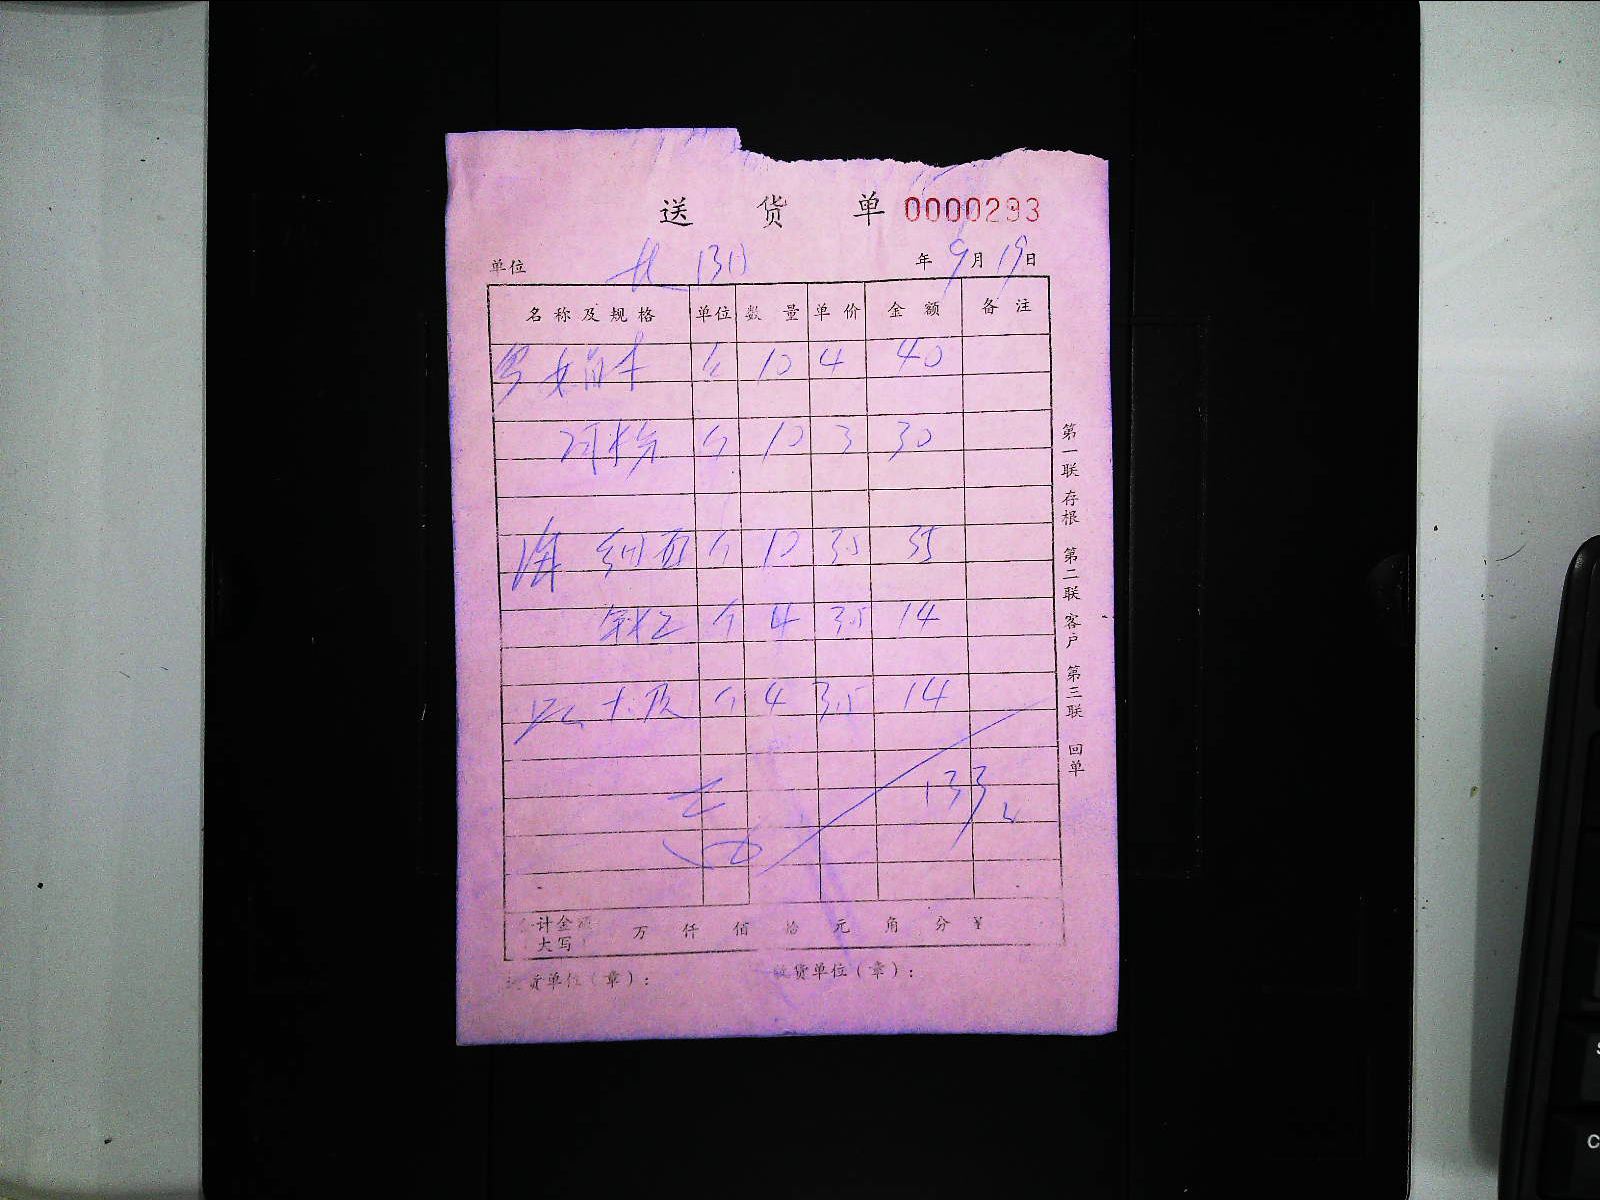 送 货 单 0000293
单位 北 131 年 9月19日
名称及规格 单位 数量 单价 金额 备注
个 10 4 40
河粉 个 10 3 30
海 细 个 10 3.5 35
个 4 3.5 14
个 4 3.5 14
133
计金额 万 仟 佰 拾 元 角 分 ¥
大写
送货单位(章): 收货单位(章):
第一联 存根 第二联 客户 第三联 回单